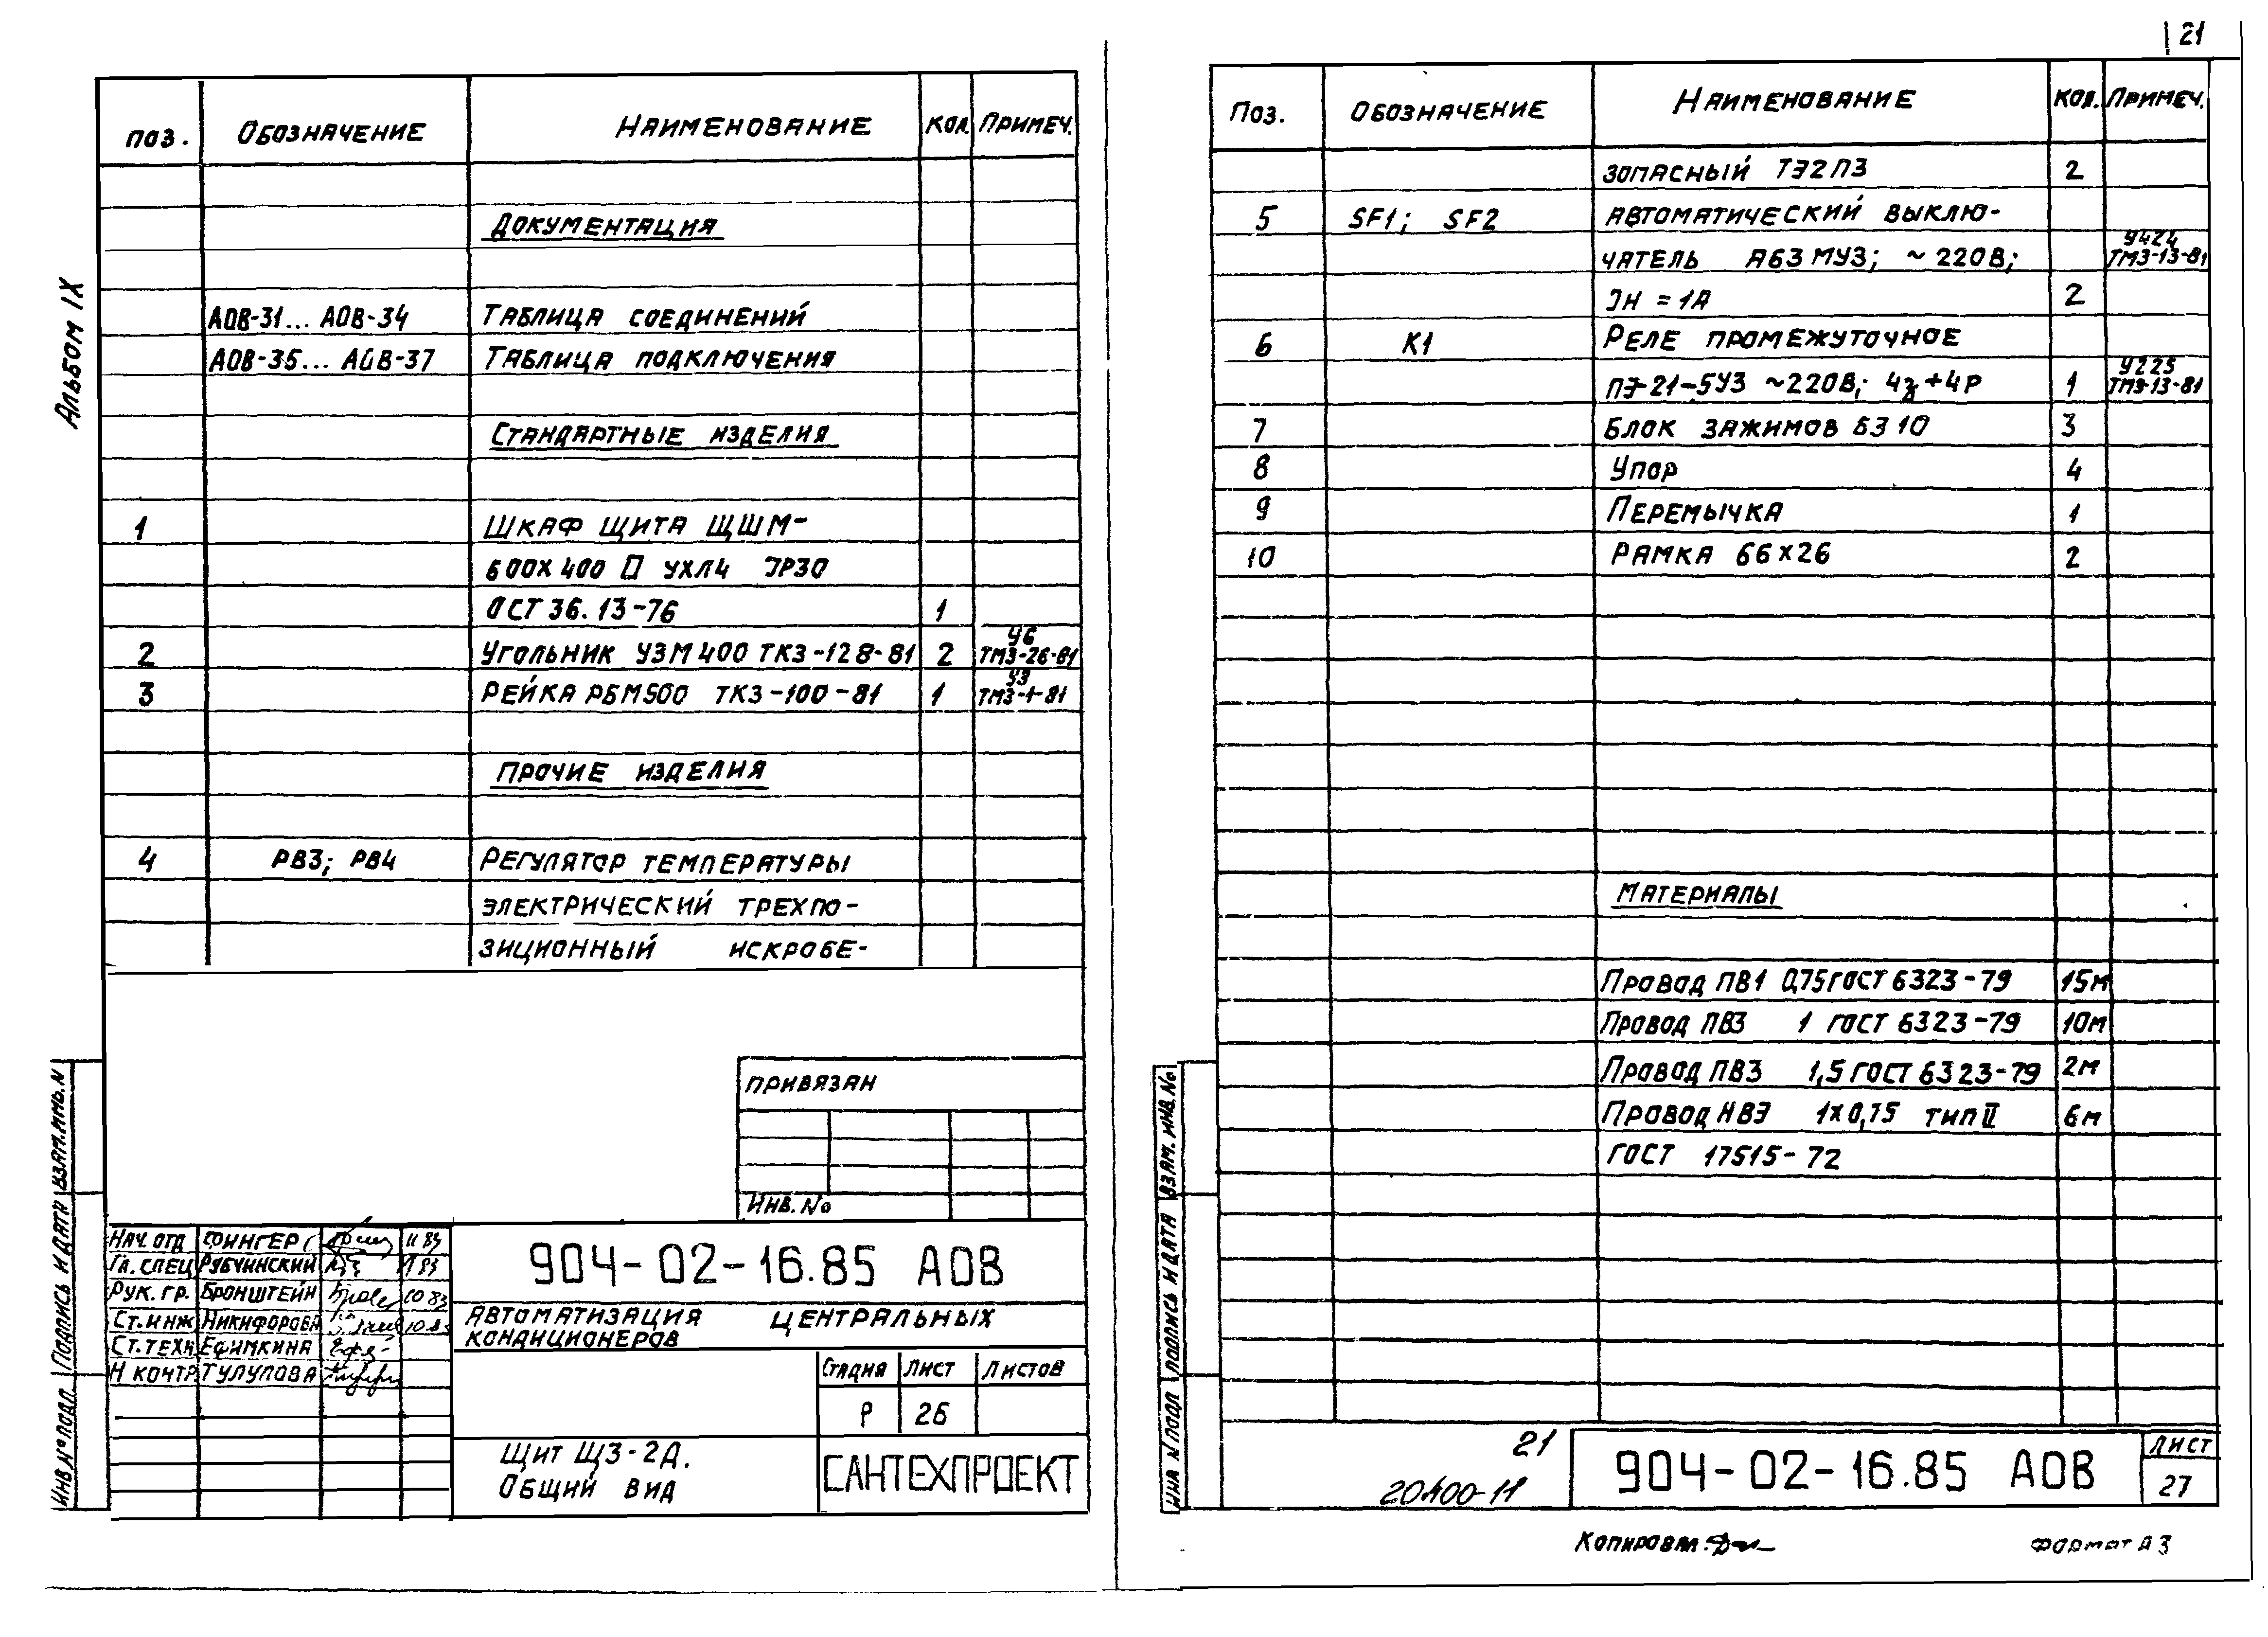 21
Альбом IX
Поз. Обозначение Наименование Кол. Примеч.
Документация
АОВ-31... АОВ-34 Таблица соединений
АОВ-35... АОВ-37 Таблица подключения
Стандартные изделия
1 Шкаф щита ЩШМ-
600х400 П УХЛ4 JР30
ОСТ 36.13-76 1
2 Угольник УЗМ400 ТК3-128-81 2 У6 ТМ3-26-81
3 Рейка РБМ500 ТК3-100-81 1 У3 ТМ3-1-81
Прочие изделия
4 РВ3; РВ4 Регулятор температуры
электрический трехпо-
зиционный искробе-
Привязан
Инв. №
Нач. отд Фингер 11 83
Гл. спец Рубчинский 11 83
Рук. гр. Бронштейн 10 83
Ст. инж Никифорова 10.83
Ст. техн Ефимкина
Н контр Тулупова
904-02-16.85 АОВ
Автоматизация центральных
кондиционеров
Стадия Лист Листов
Р 26
Щит Щ3-2Д.
Общий вид
САНТЕХПРОЕКТ
Инв. № подл. Подпись и дата Взам. инв. N
Поз. Обозначение Наименование Кол. Примеч.
зопасный ТЭ2П3 2
5 SF1; SF2 Автоматический выклю-
чатель А63МУ3; ~220В; У424 ТМ3-13-81
Jн = 1А 2
6 К1 Реле промежуточное
ПЭ-21-5У3 ~220В; 4з+4р 1 У225 ТМ3-13-81
7 Блок зажимов БЗ 10 3
8 Упор 4
9 Перемычка 1
10 Рамка 66х26 2
Материалы
Провод ПВ1 0,75 ГОСТ 6323-79 15м
Провод ПВ3 1 ГОСТ 6323-79 10м
Провод ПВ3 1,5 ГОСТ 6323-79 2м
Провод НВЭ 1х0,75 тип II 6м
ГОСТ 17515-72
Инв N подл Подпись и дата Взам. инв. №
21
20400-11
904-02-16.85 АОВ
Лист
27
Копировал.
Формат А3